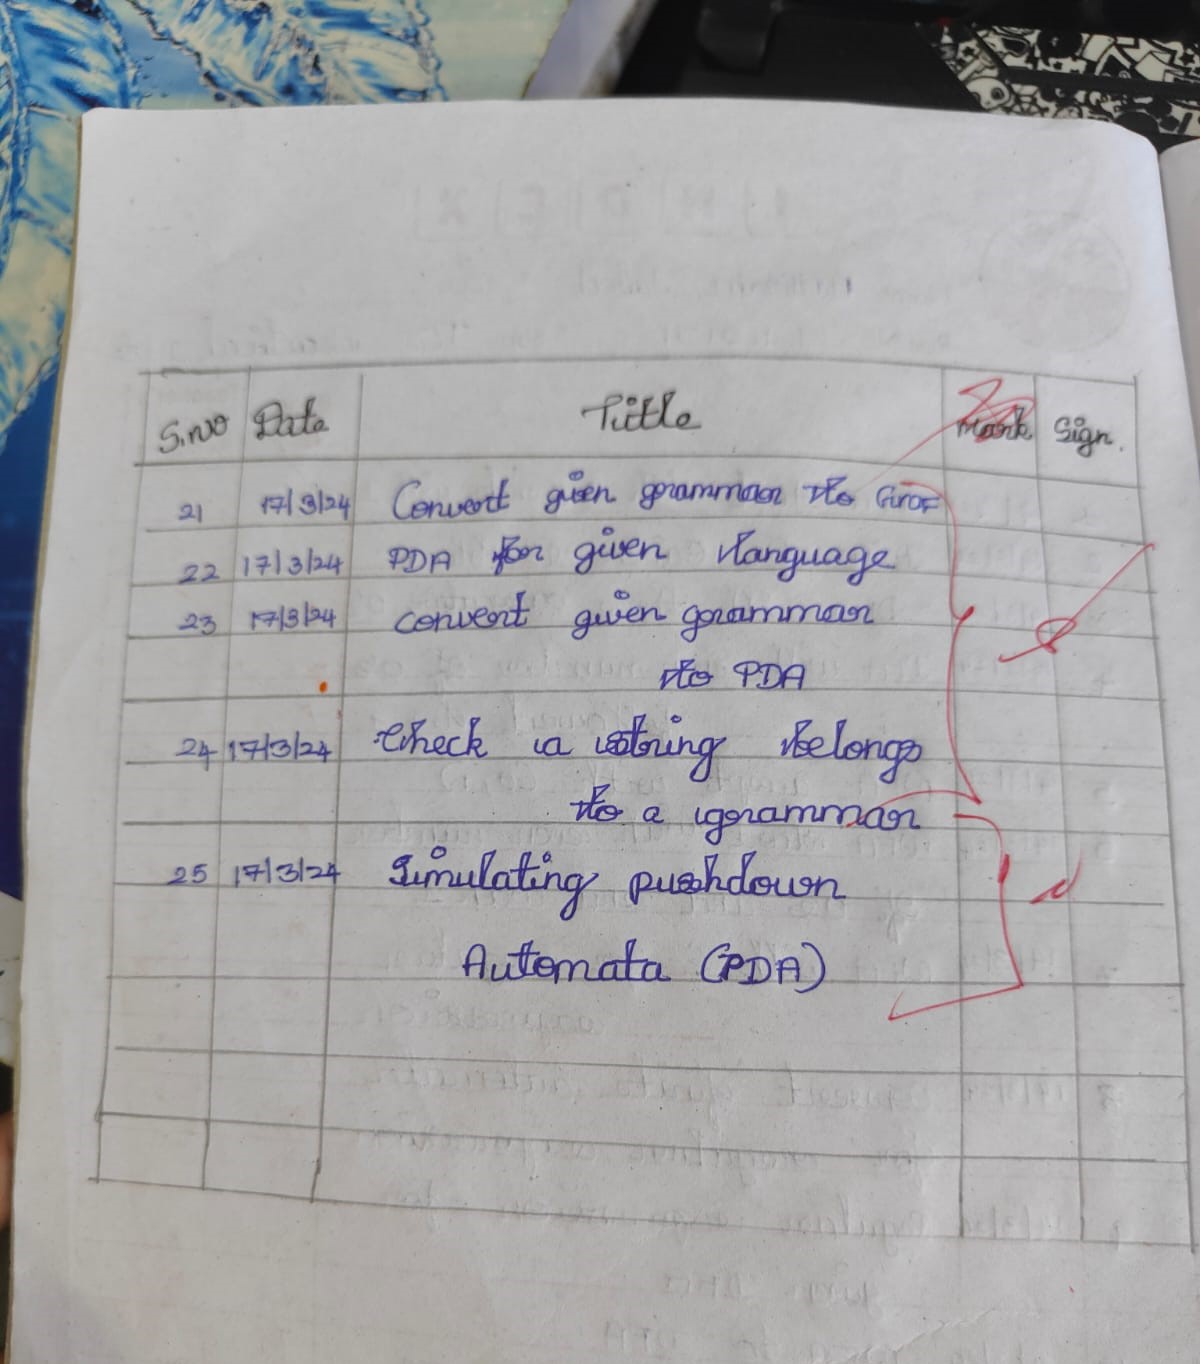 S.no Date Title Mark Sign.
21 17/3/24 Convert given grammar to GNF
22 17/3/24 PDA for given language
23 17/3/24 convert given grammar
to PDA
24 17/3/24 Check a string belongs
to a grammar
25 17/3/24 Simulating pushdown
Automata (PDA)